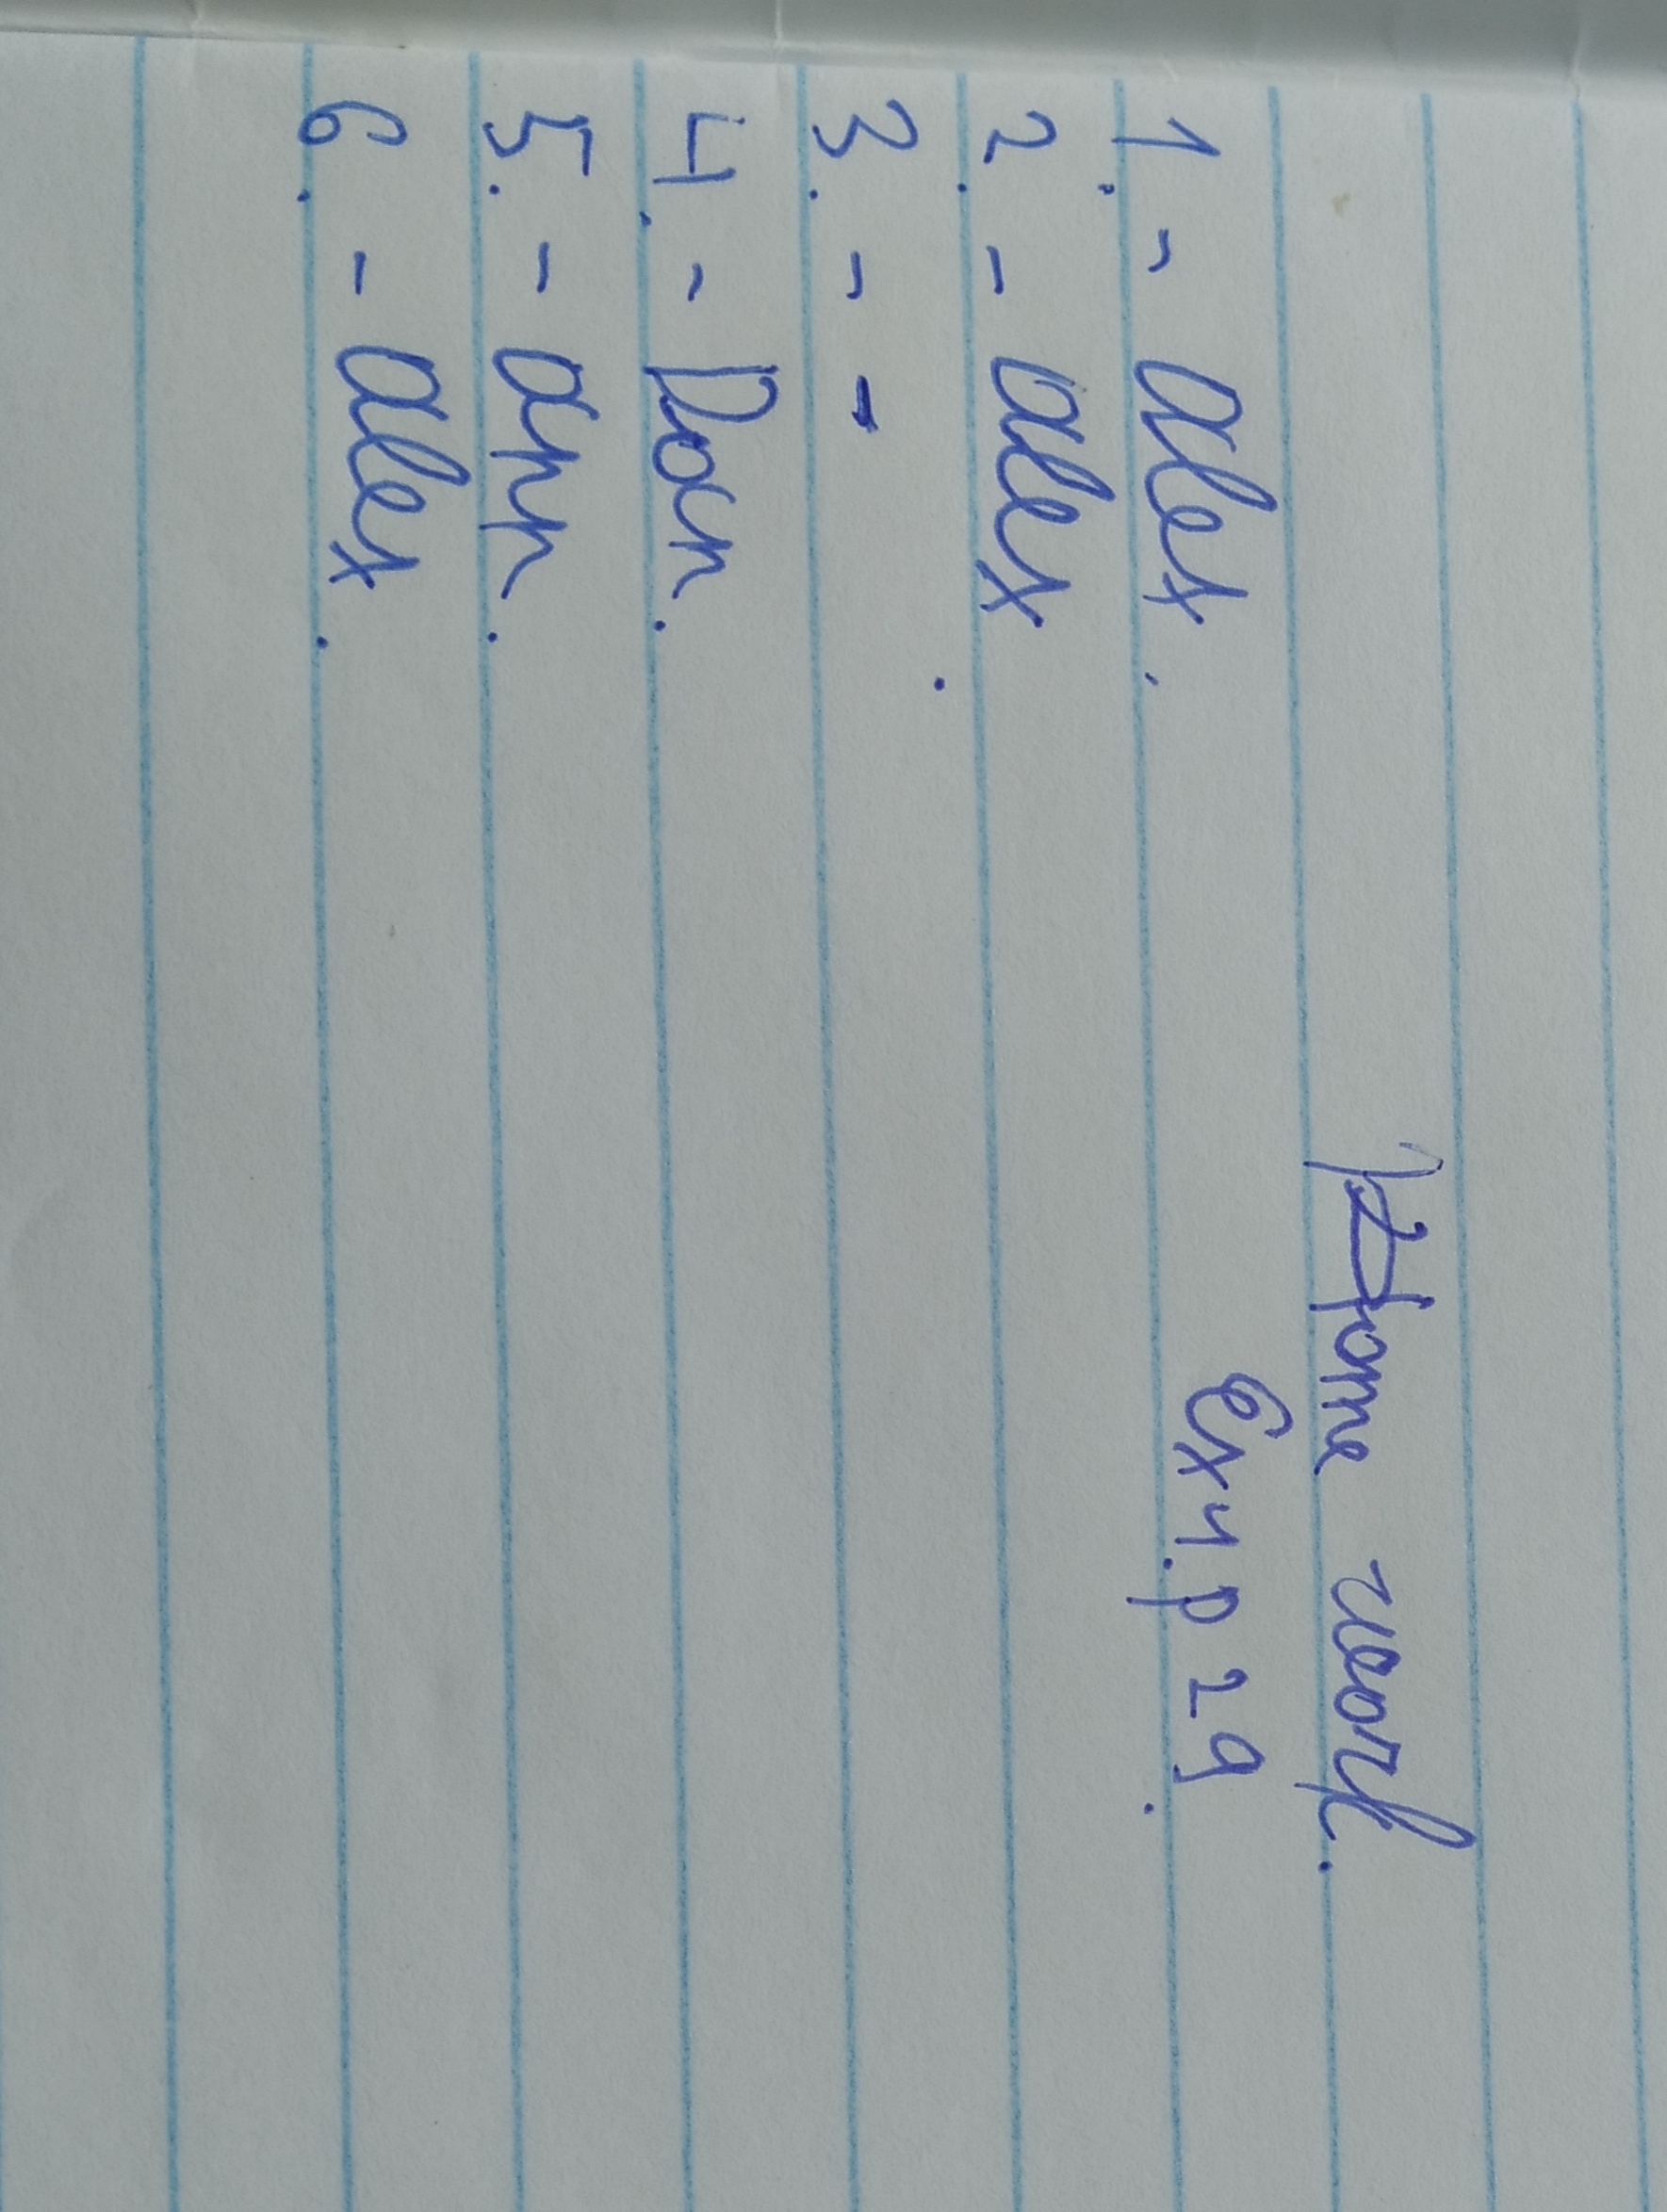 Home work.
Ex 4. p 29.
1. - Alex.
2. - Alex.
3. - -
4. - Dan.
5. - Ann.
6. - Alex.